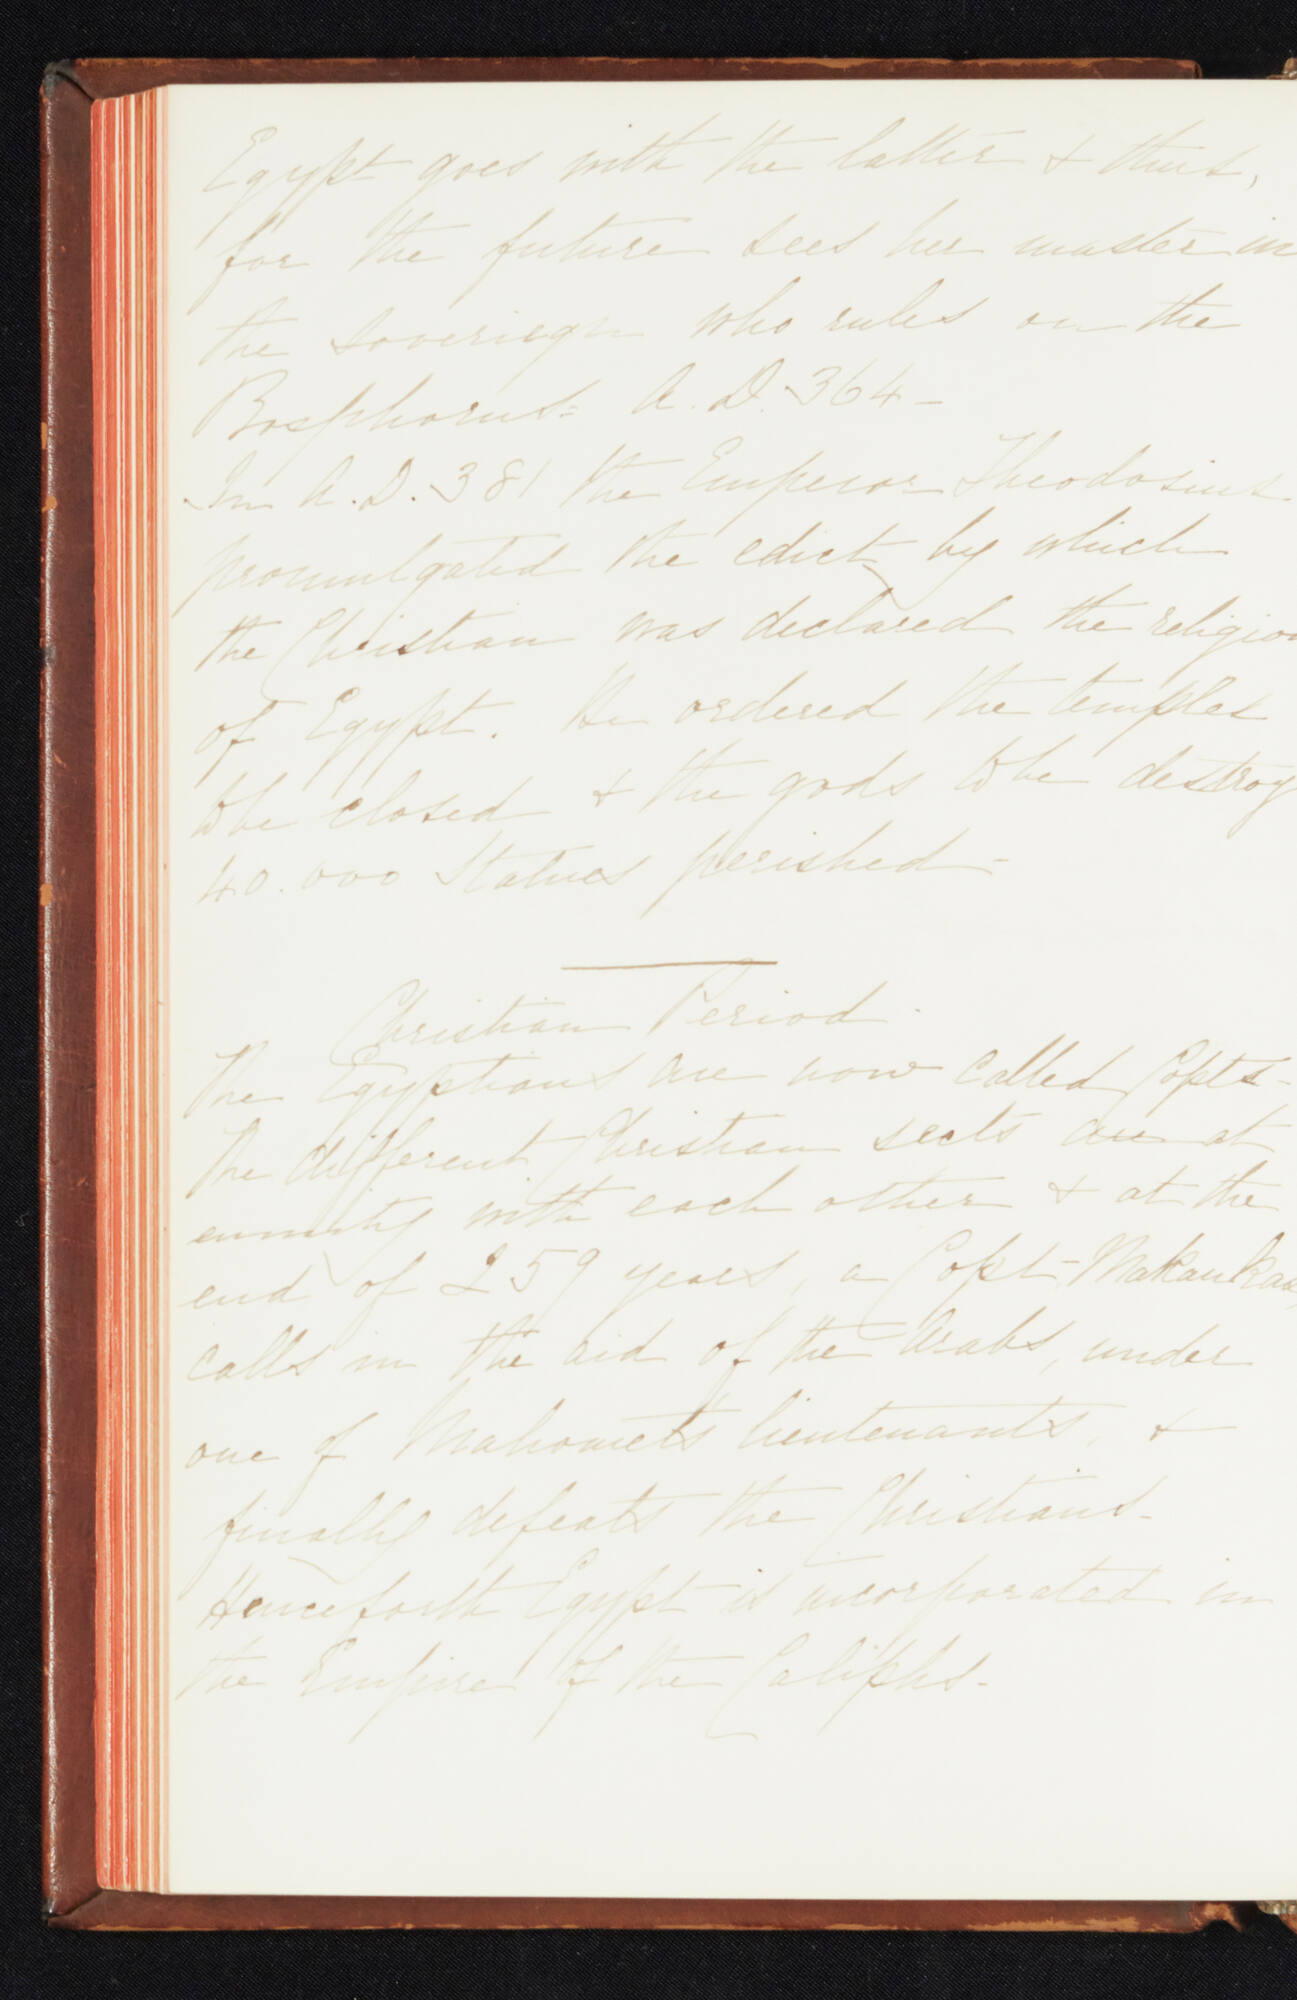 Egypt goes with the latter & thus,
for the future sees her master in
the soveriegn who rules on the
Bosphorus - A.D. 364 -
In A.D. 381 the Emperor Theodosius
promulgated the edict by which
the Christian was declared the religion
of Egypt. He ordered the temples
to be closed & the gods to be destroy
40.000 Statues perished -
Christian Period.
The Egyptians are now called Copts -
The different Christian sects are at
enmity with each other & at the
end of 259 years, a Copt - Makaukas,
calls in the aid of the Arabs, under
one of Mahomet's lieutenants, &
finally defeats the Christians -
Henceforth Egypt is incorporated in
the Empire of the Caliphs -